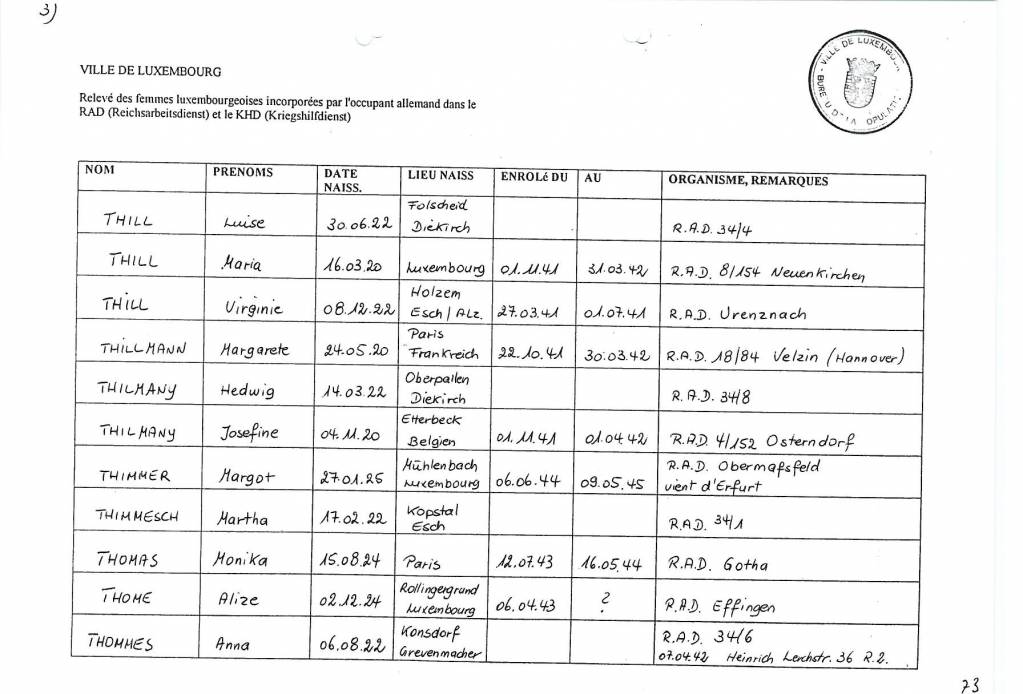 3)
VILLE DE LUXEMBOURG
Relevé des femmes luxembourgeoises incorporées par l'occupant allemand dans le
RAD (Reichsarbeitsdienst) et le KHD (Kriegshilfdienst)
VILLE DE LUXEMBOU
BUREAU D LA OPULATI
NOM PRENOMS DATE NAISS. LIEU NAISS ENROLé DU AU ORGANISME, REMARQUES
THILL Luise 30.06.22 Folscheid Diekirch R.A.D. 34/4
THILL Maria 16.03.20 Luxembourg 01.11.41 31.03.42 R.A.D. 8/154 Neuenkirchen
THILL Virginie 08.12.22 Holzem Esch/Alz. 27.03.41 01.07.41 R.A.D. Urenznach
THILLMANN Margarete 24.05.20 Paris Frankreich 22.10.41 30.03.42 R.A.D. 18/84 Velzin (Hannover)
THILMANY Hedwig 14.03.22 Oberpallen Diekirch R.A.D. 34/8
THILMANY Josefine 04.11.20 Etterbeck Belgien 01.11.41 01.04.42 R.A.D. 4/152 Osterndorf
THIMMER Margot 27.01.25 Mühlenbach Luxembourg 06.06.44 09.05.45 R.A.D. Obermaßfeld vient d'Erfurt
THIMMESCH Martha 17.02.22 Kopstal Esch R.A.D. 34/1
THOMAS Monika 15.08.24 Paris 12.07.43 16.05.44 R.A.D. Gotha
THOME Alize 02.12.24 Rollingergrund Luxembourg 06.04.43 ? R.A.D. Effingen
THOMMES Anna 06.08.22 Konsdorf Grevenmacher R.A.D. 34/6 07.04.42 Heinrich Lerchstr. 36 R.2.
73